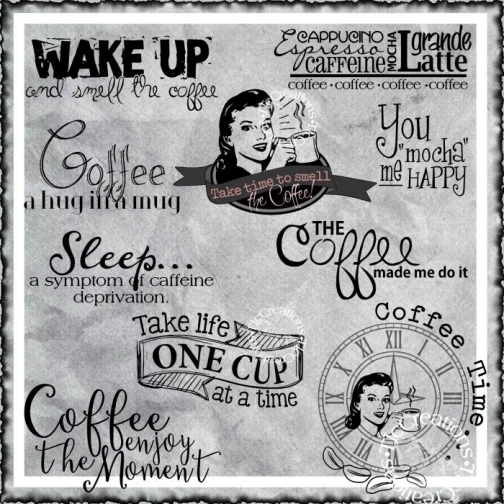 WAKE UP
and smell the coffee
CAPPUCINO
Espresso
caffeine
MOCHA
grande
Latte
coffee • coffee • coffee • coffee
Coffee
a hug in a mug
Take time to smell
the Coffee!
You
"mocha"
me HAPPY
Sleep...
a symptom of caffeine
deprivation.
THE
Coffee
made me do it
Take life
ONE CUP
at a time
Coffee Time...
XII
I
II
III
VIII
IX
X
XI
Coffee
enjoy
the Moment